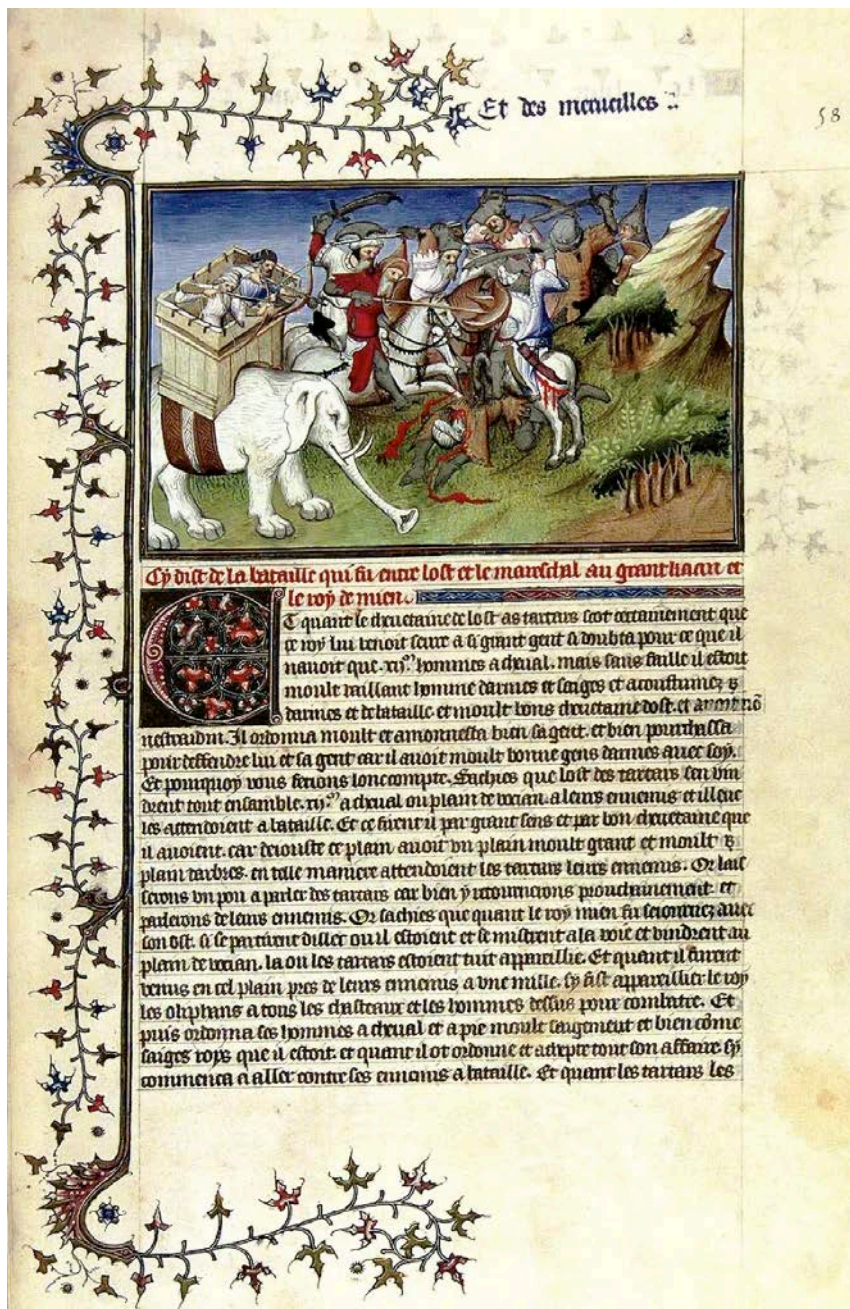 Et des merueilles
58
Cy dist de la bataille qui fu entre lost et le mareschal au grant kaan et
le roy de mien.
Et quant le cheuetaine de lost as tartars scot certainement que
ce roy lui venoit seure a si grant gent si doubta pour ce que il
nauoit que .xij. hommes a cheual. mais sans faille il estoit
moult vaillant homme darmes et saiges et acoustumez
darmes et de bataille. et moult bons cheuetaine dost. et
Il ordonna moult et amonnesta bien sa gent. et bien pourchassa
pour deffendre lui et sa gent car il auoit moult bonne gens darmes auec soy.
Et pourquoy vous feroions lonc compte. Sachies que lost des tartars sen vin
drent tout ensamble. xij. a cheual ou plain de vocian. a leurs ennemis et illeuc
les attendoient a bataille. Et ce firent il par grant sens et par bon cheuetaine que
il auoient. car deiouste ce plain auoit vn plain moult grant et moult
plain darbres. en telle maniere attendoient les tartars leurs ennemis. Or lais
serons vn pou a parler des tartars car bien y retournerons prouchainement. et
parlerons de leurs ennemis. Or sachies que quant le roy mien fu seiournez auec
son ost. si se partirent dillec ou il estoient et se mistrent a la voie et vindrent au
plain de vocian. la ou les tartars estoient tuit appareillie. Et quant il furent
venus en cel plain pres de leurs ennemis a vne mille. sy fist appareillier le roy
les oliphans a tous les chasteaux et les hommes dessus pour combatre. Et
puis ordonna ses hommes a cheual et a pie moult saigement et bien come
saiges roys que il estoit. et quant il ot ordonne et tout son affaire sy
commenca a aller contre ses ennemis a bataille. Et quant les tartars les